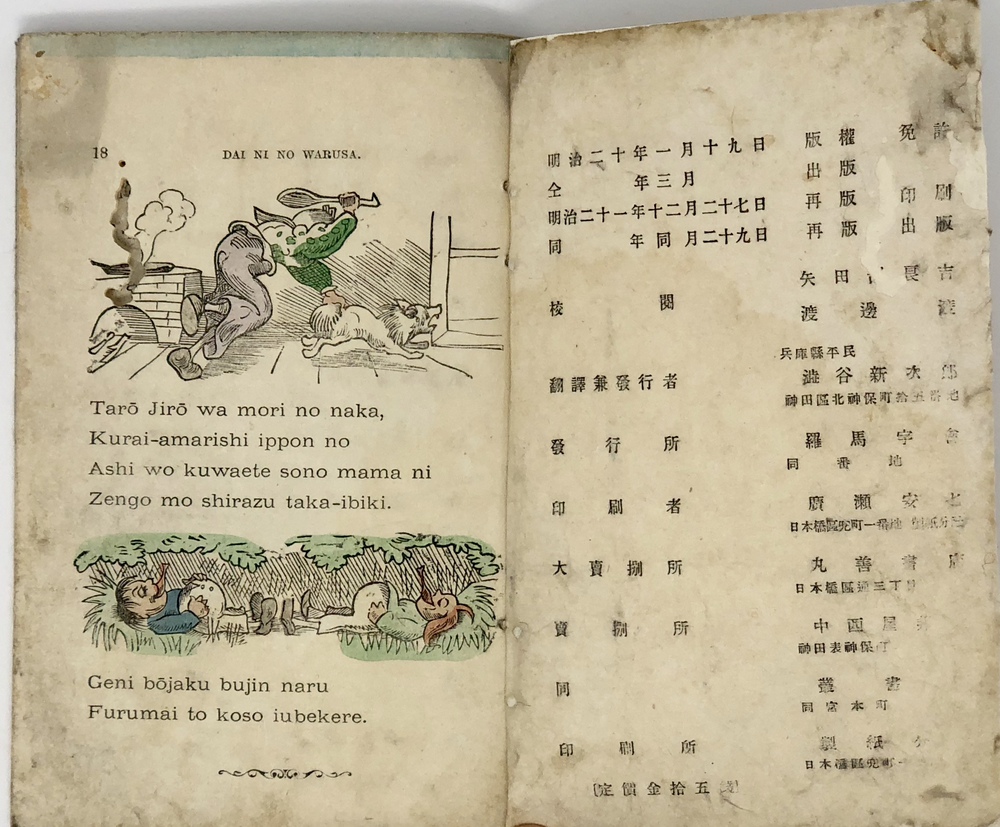 18 DAI NI NO WARUSA.
Tarō Jirō wa mori no naka,
Kurai-amarishi ippon no
Ashi wo kuwaete sono mama ni
Zengo mo shirazu taka-ibiki.
Geni bōjaku bujin naru
Furumai to koso iubekere.
明治二十年一月十九日 版權免許
仝 年三月 出版
明治二十一年十二月二十七日 再版印刷
同 年同月二十九日 再版出版
矢田 長吉
校閲
渡邊
兵庫縣平民
翻譯兼發行者 澁谷新次郎
神田區北神保町拾五番地
發行所 羅馬字會
同番地
印刷者 廣瀬安七
日本橋區兜町一番地
大賣捌所 丸善書
日本橋區通三丁
賣捌所 中西屋
神田表神保
同 叢書
同宮本町
印刷所 製紙分
日本橋區兜町
定價金拾五